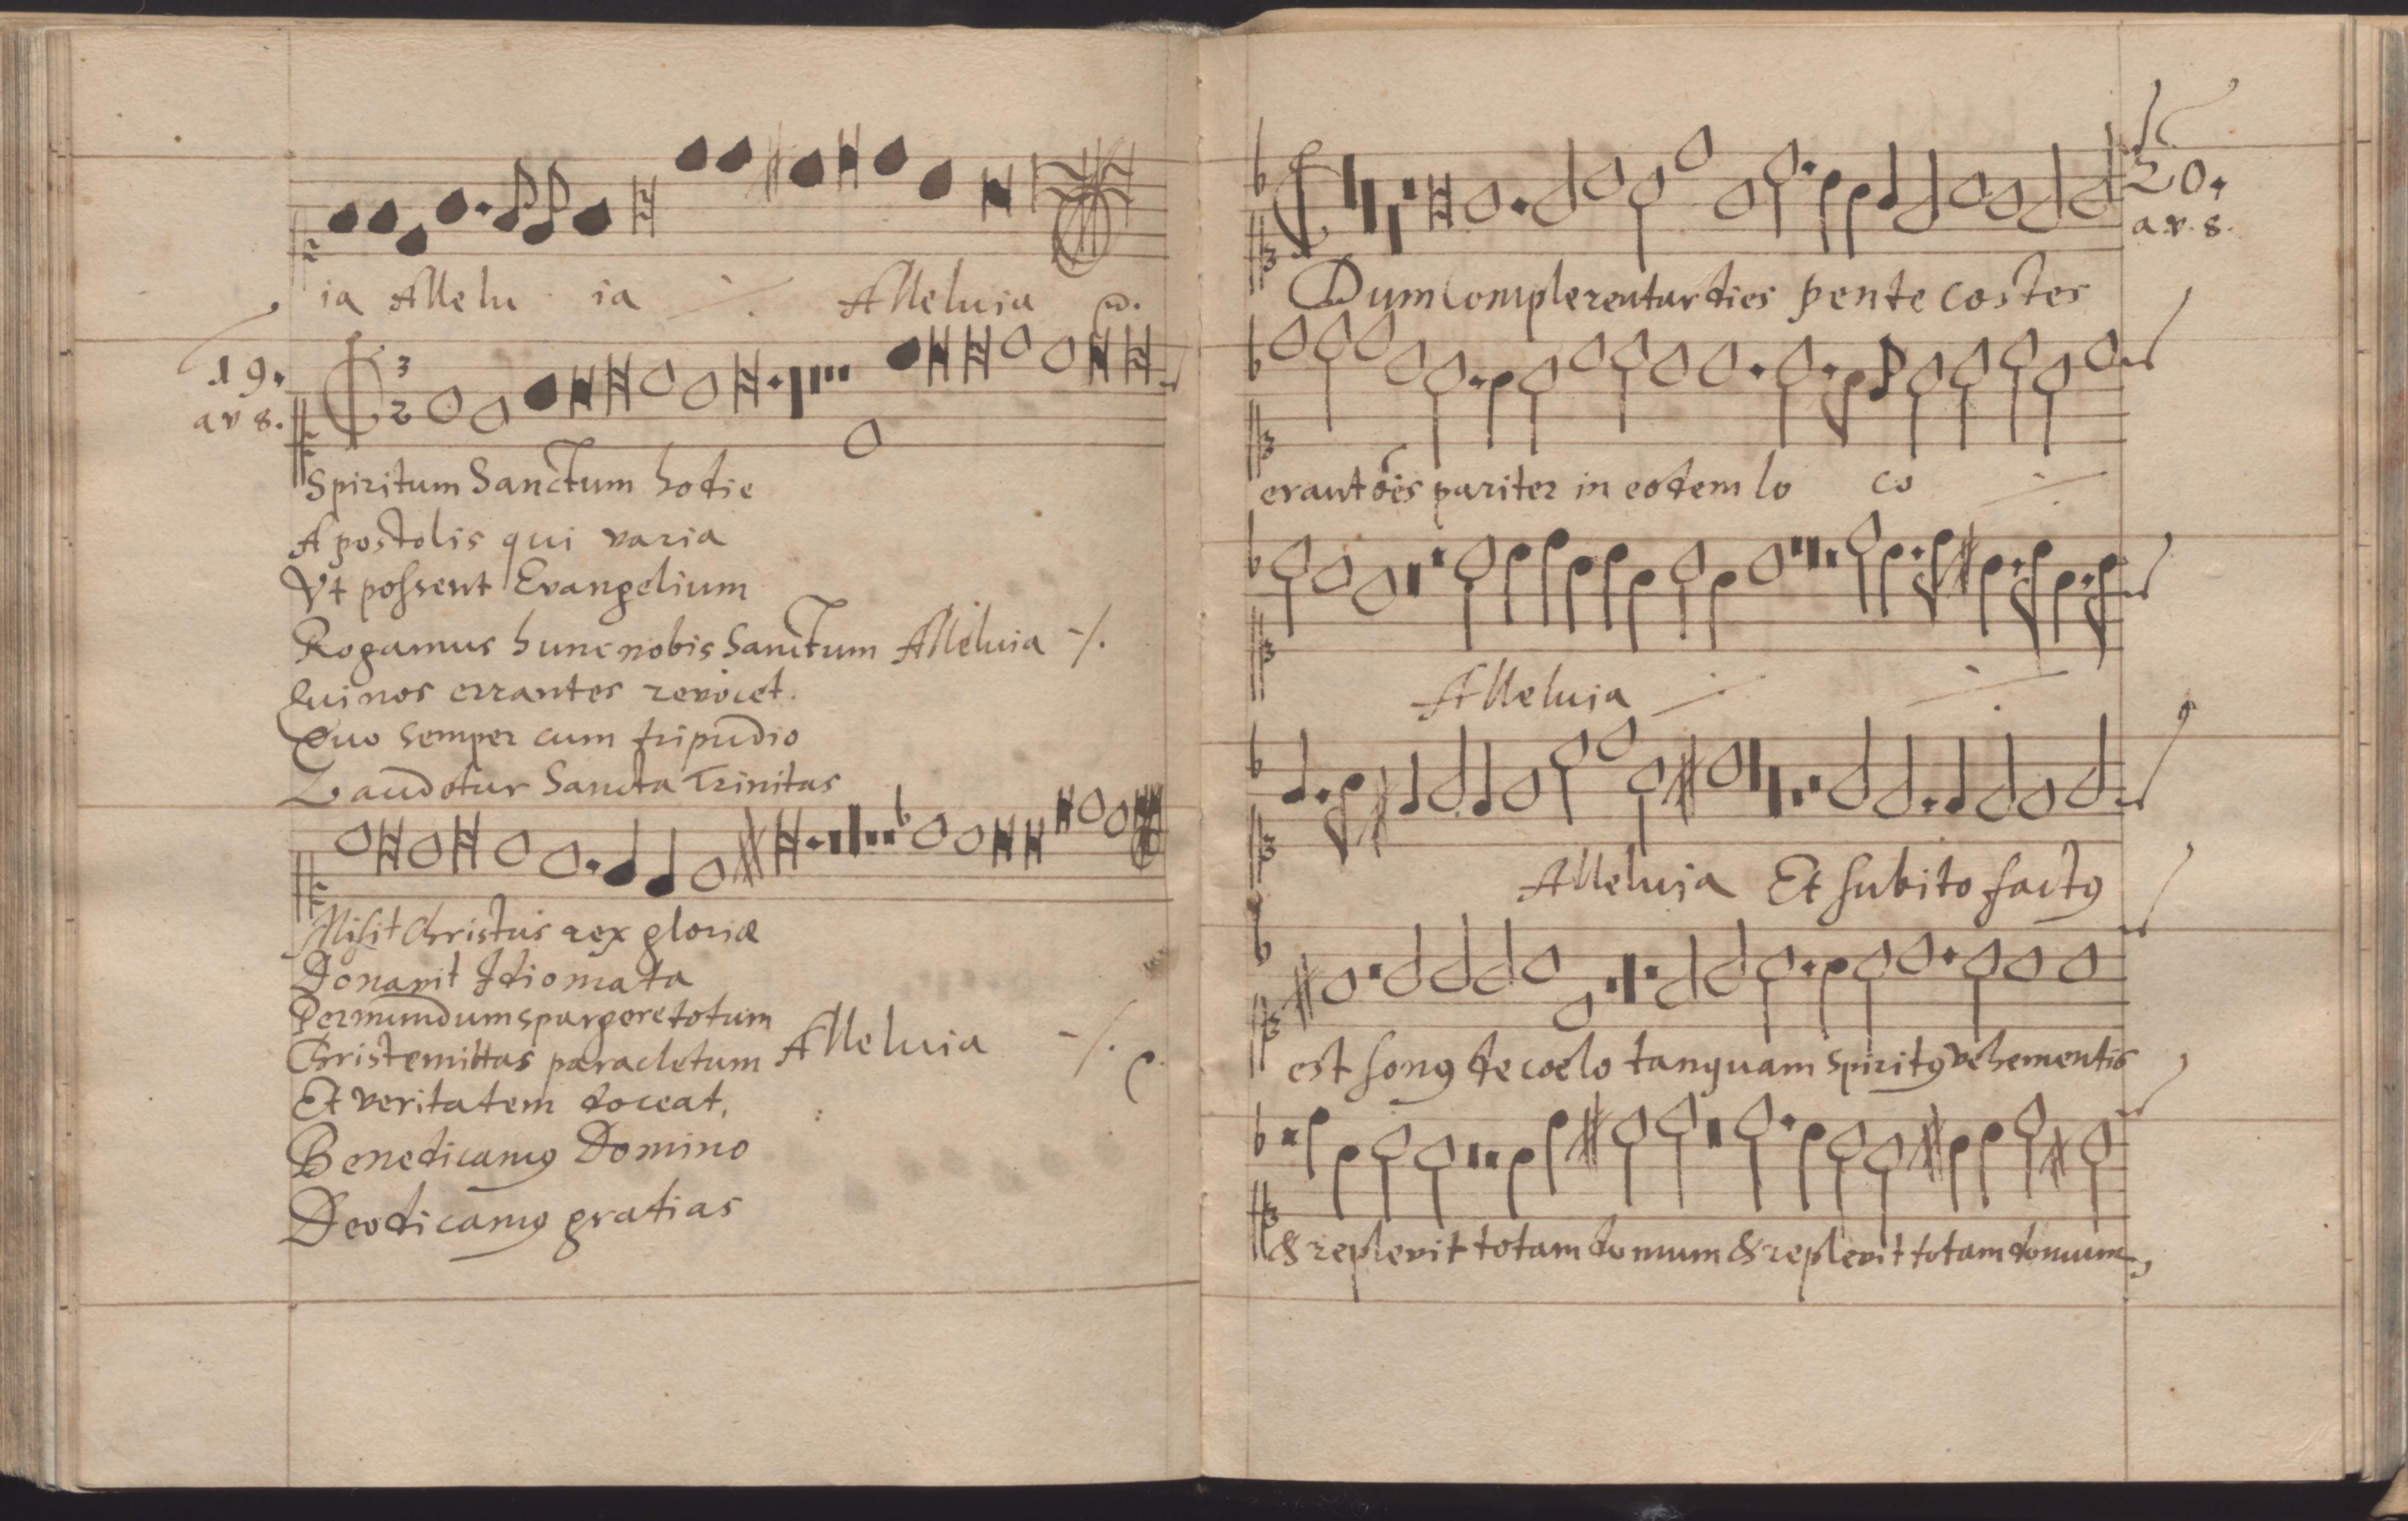 ia Allelu ia Alleluia
19.
av 8.
3
2
Spiritum Sanctum hodie
Apostolis qui varia
Vt possent Evangelium
Rogamus hunc nobis Sanctum Alleluia
Qui nos errantes revocet.
Quo semper cum tripudio
Laudetur Sancta Trinitas
Misit Christus rex gloriæ
Donavit Idiomata
Per mundum spargere totum
Christe mittas paracletum Alleluia
Et veritatem doceat,
Benedicamꝰ Domino
Deo dicamꝰ gratias
20.
a v. 8.
Dum Complerentur dies pente costes
erant oēs pariter in eodem lo co
Alleluia
Alleluia Et subito factꝰ
est sonꝰ de coelo tanquam Spiritꝰ vehementis
& replevit totam domum & replevit totam domum,